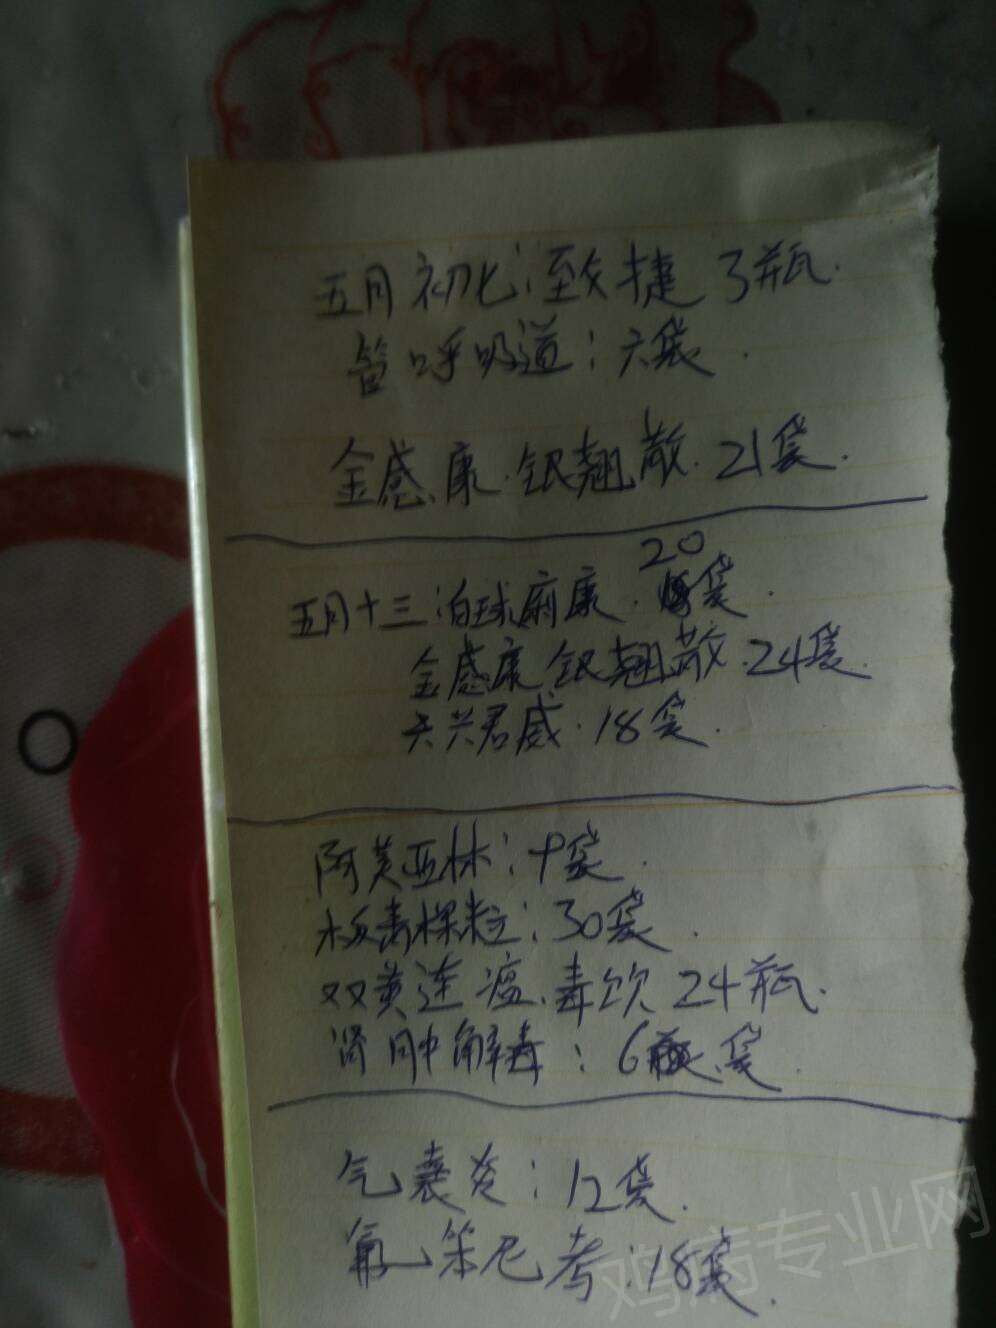 五月初七：致捷 3瓶.
管呼吸道：六袋.
金感康.银翘散.21袋.
五月十三：泊球痢康.20袋.
金感康 银翘散.24袋.
天兴君威.18袋.
阿莫亚林：9袋.
板青棵粒：30袋.
双黄连瘟.毒饮 24瓶.
肾肿解毒：6袋.
气囊炎：12袋.
氟笨尼考：18袋.
鸡病专业网